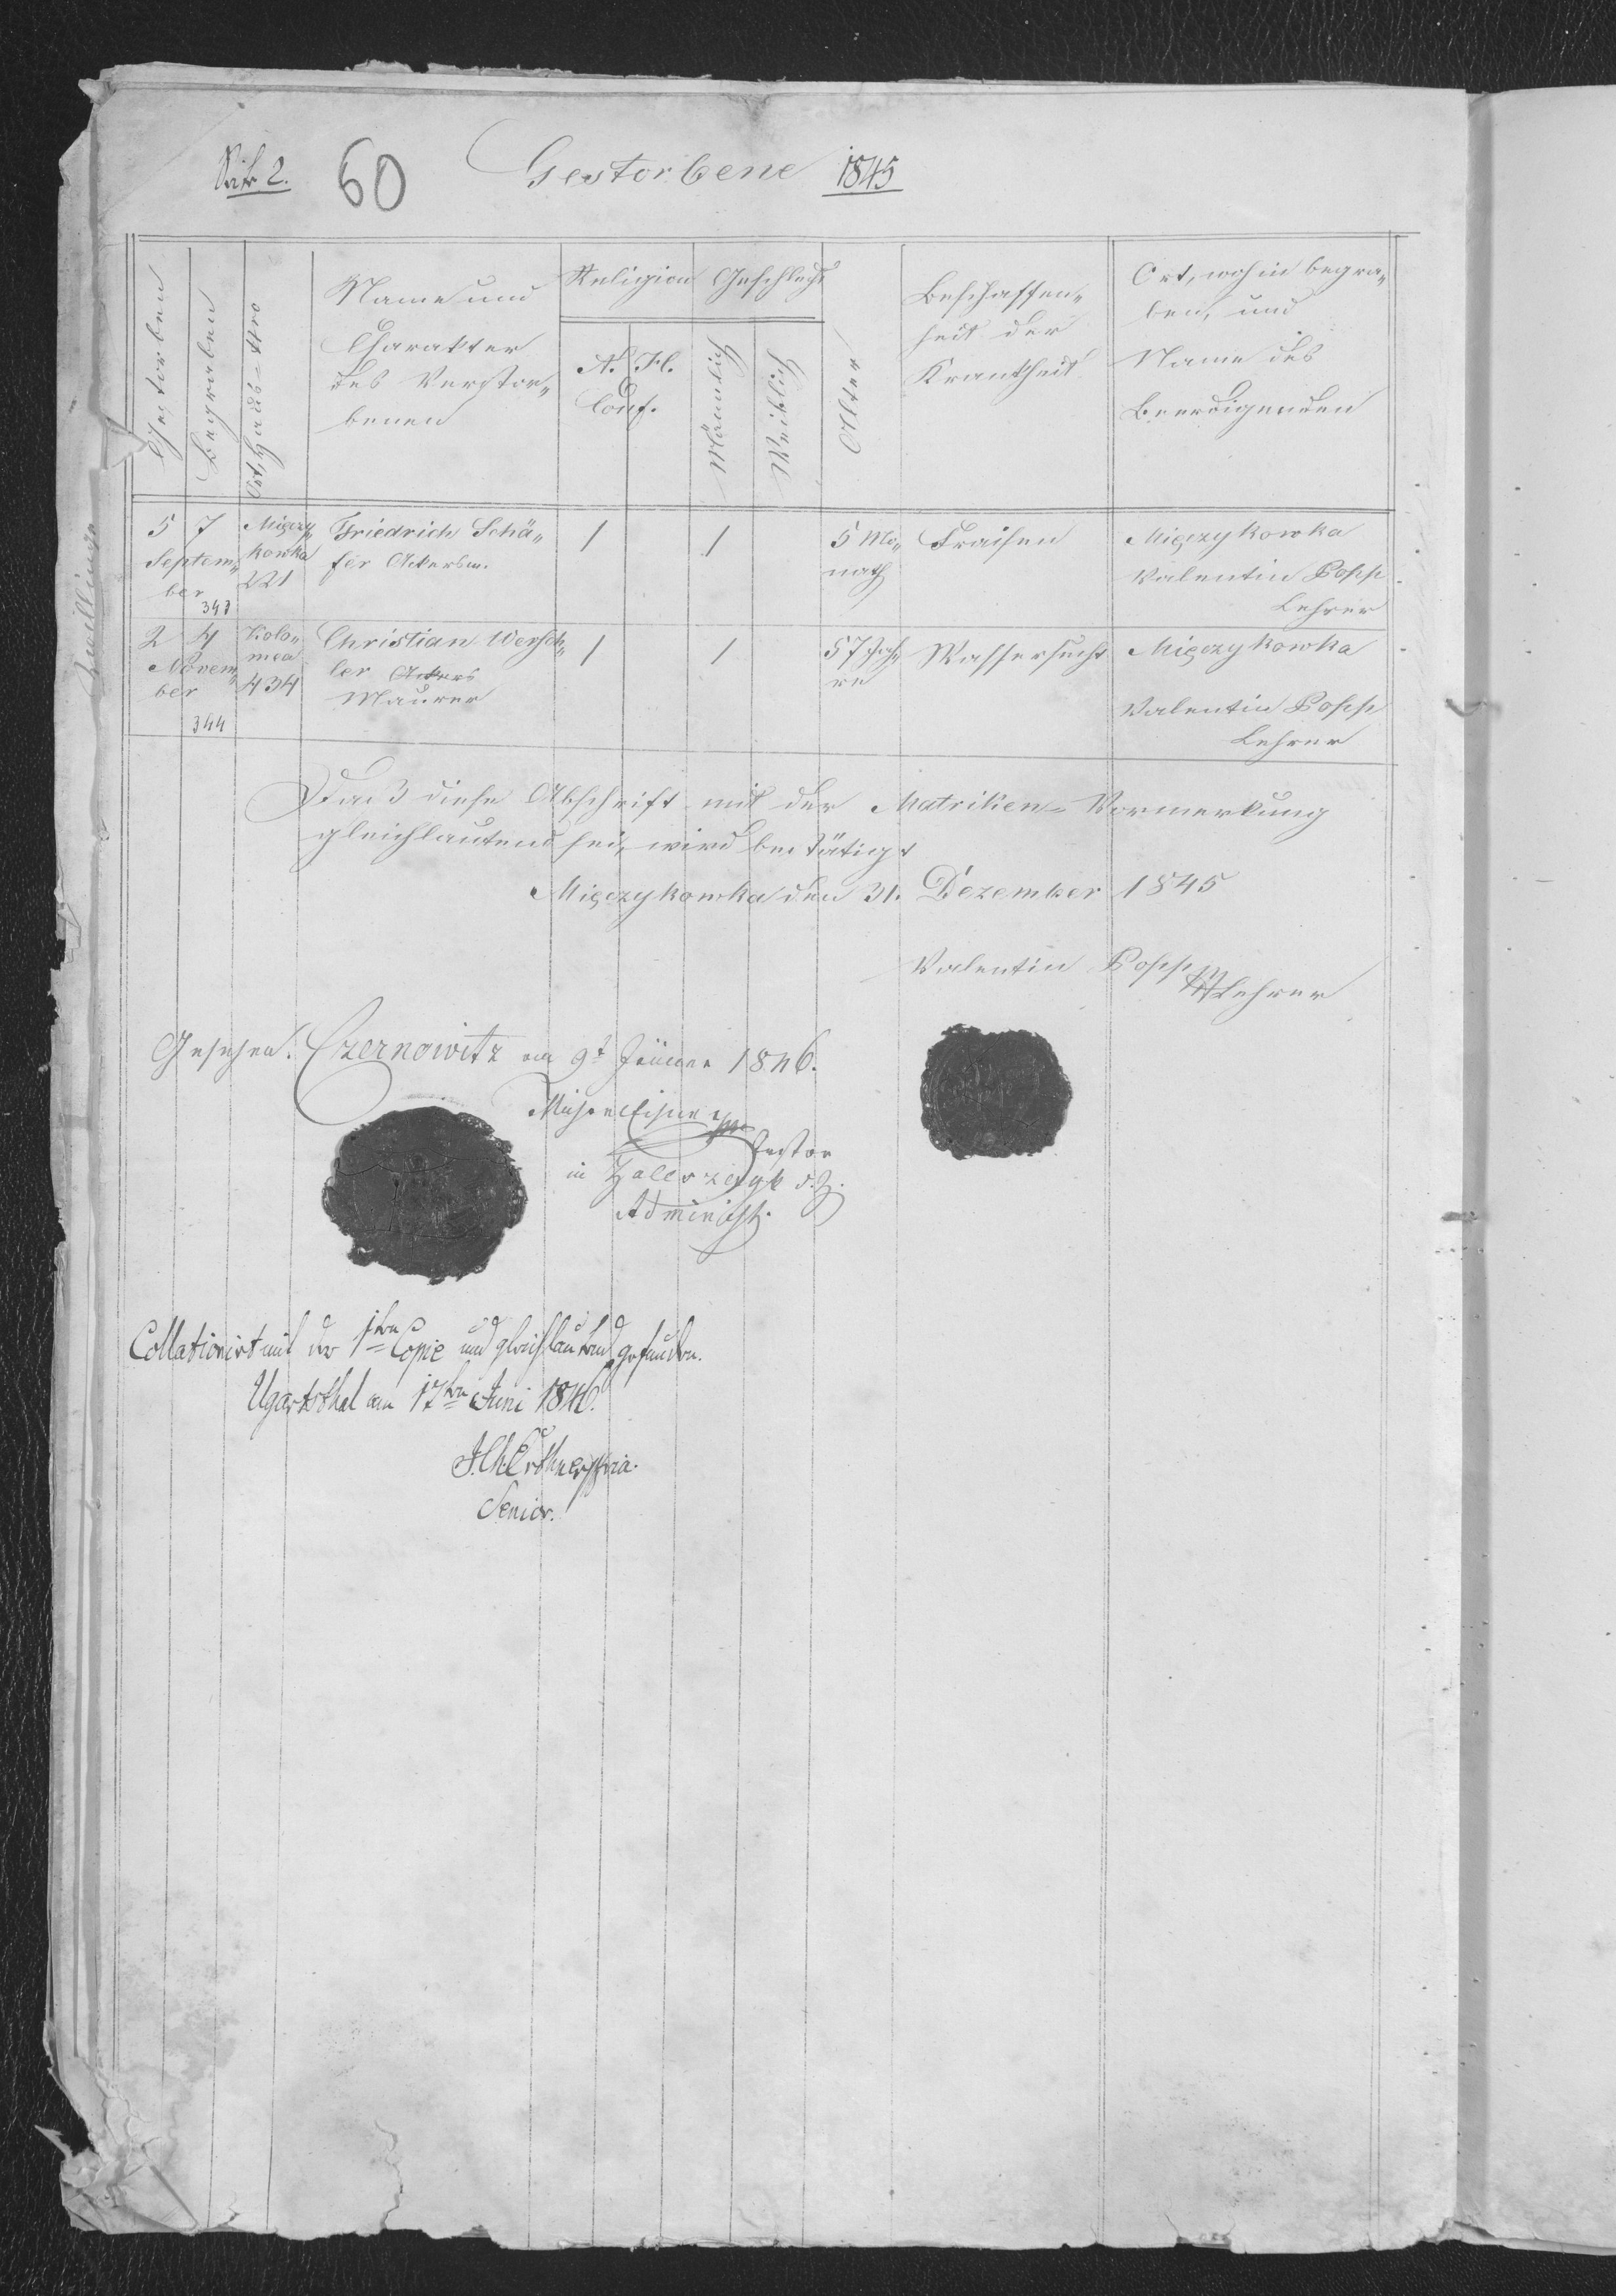 Seite 2. 60 Gestorbene 1845
Gestorben
Begraben
Ort, Haus-Nro
Name und
Charakter
des Verstor„
benen
Religion
A. H.
Conf.
Geschlecht
Mänlich
Weiblich
Alter
Beschaffen„
heit der
Krankheit
Ort, wohin begra„
ben, und
Name des
Beerdigenden
5 7
Septem„
ber
343
Mięczy„
kowka
221
Friedrich Schä„
fer Ackersm.
1
1
5 Mo„
nath
Fraisen
Mięczykowka
Valentin Popp
Lehrer
2 4
Novem„
ber
344
Kolo„
mea
434
Christian Wersch„
ler Ackers
Maurer
1
1
57 Jah„
re
Wassersucht
Mięczykowka
Valentin Popp
Lehrer
Daß diese Abschrift mit der Matriken-Vormerkung
gleichlautend sei, wird bestätigt
Mięczykowka den 31. Dezember 1845
Valentin Popp
Lehrer
Gesehen. Czernowitz am 9t Jänner 1846.
Pastor
in Zaleszczyk d. Z.
Administ.
Collationirt mit der 1ten Copie und gleichlautend gefunden.
Ugartsthal am 17ten Juni 1846.
J. Ch. Erthner mpria.
Senior.
Zwillinge